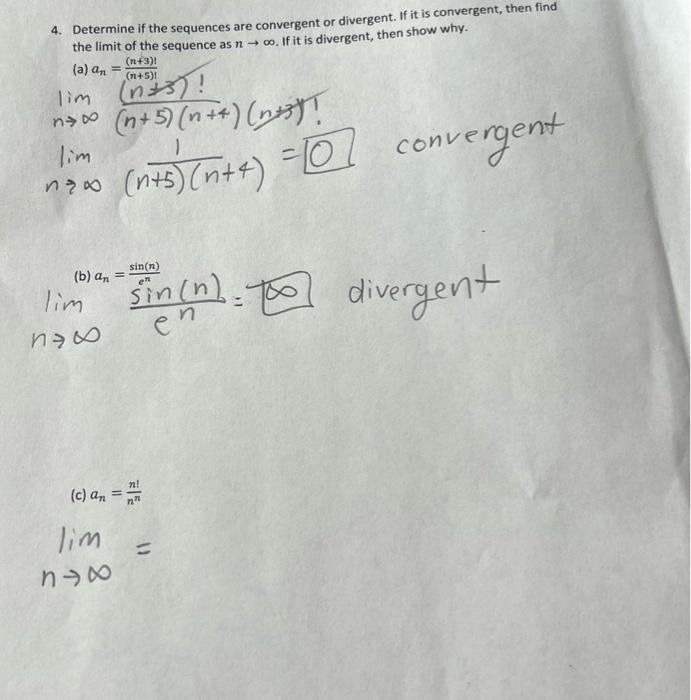 4. Determine if the sequences are convergent or divergent. If it is convergent, then find
the limit of the sequence as n → ∞. If it is divergent, then show why.
(a) aₙ = (n+3)!/(n+5)!
lim n→∞ (n+3)!/(n+5)(n+4)(n+3)!
lim n→∞ 1/(n+5)(n+4) = 0 convergent
(b) aₙ = sin(n)/eⁿ
lim n→∞ sin(n)/eⁿ = ∞ divergent
(c) aₙ = n!/nⁿ
lim n→∞ =